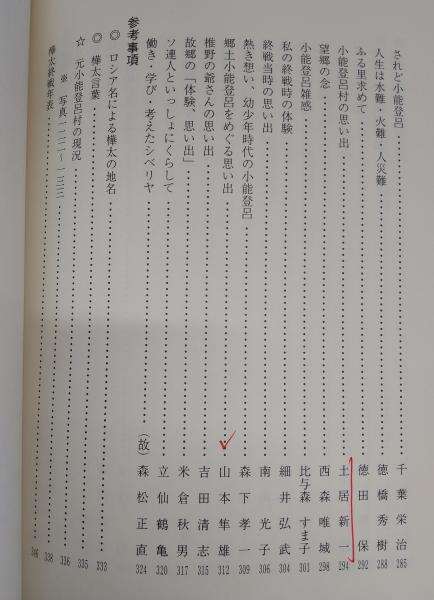 されど小能登呂 千葉栄治 285
人生は水難・火難・人災難 徳橋秀樹 288
ふる里求めて 徳田 保 292
小能登呂村の思い出 土居新一 294
望郷の念 西森唯城 298
小能登呂雑感 比与森すま子 301
私の終戦時の体験 細井弘武 304
終戦当時の思い出 南 光子 306
熱き想い、幼少年時代の小能登呂 森下孝一 309
郷土小能登呂をめぐる思い出 山本隼雄 312
椎野の爺さんの思い出 吉田清志 315
故郷の「体験、思い出」 米倉秋男 317
ソ連人といっしょにくらして 立仙鶴亀 320
働き・学び・考えたシベリヤ (故)森松正直 324
参考事項
◎ ロシア名による樺太の地名 333
◎ 樺太言葉 335
☆ 元小能登呂村の現況 336
※ 写真一二二~一三三 338
樺太終戦年表 346